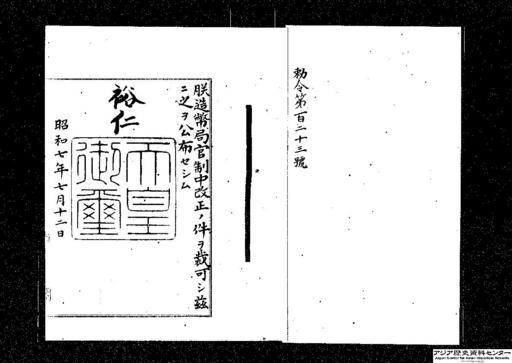 勅令第百二十三號
朕造幣局官制中改正ノ件ヲ裁可シ茲
ニ之ヲ公布セシム
裕仁
天皇御璽
昭和七年七月十二日
アジア歴史資料センター
Japan Center for Asian Historical Records